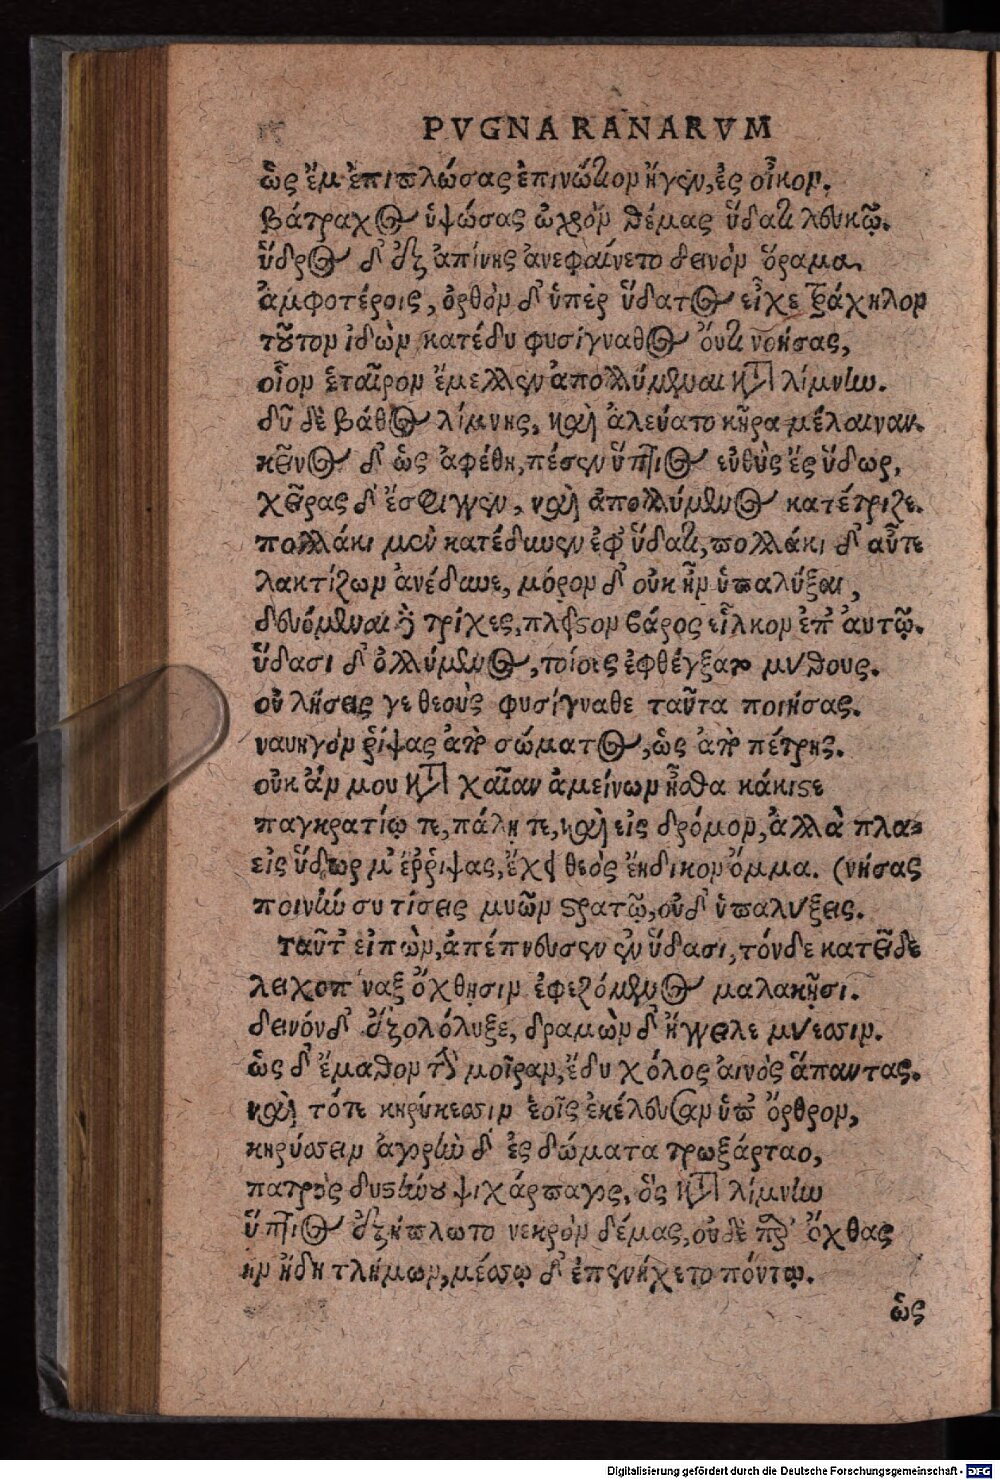 PVGNA RANARVM
ὣς ἔμ' ἐπιπλώσας ἐπινώτιον ἦγεν, ἐς οἶκον.
βάτραχος ὑψώσας ὠχρὸν δέμας ὕδατι λευκῷ.
ὕδρος δ' ἐξαπίνης ἀνεφαίνετο δεινὸν ὅραμα,
ἀμφοτέροις, ὀρθὸν δ' ὑπὲρ ὕδατος εἶχε τράχηλον
τοῦτον ἰδὼν κατέδυ φυσίγναθος οὔτι νοήσας,
οἷον ἑταῖρον ἔμελλεν ἀπολλύμεναι κατὰ λίμνην.
δῦ δὲ βάθος λίμνης, καὶ ἀλεύατο κῆρα μέλαιναν.
κεῖνος δ' ὡς ἀφέθη, πέσεν ὕπτιος εὐθὺς ἐς ὕδωρ,
χεῖρας δ' ἔσφιγγεν, καὶ ἀπολλύμενος κατέτριζε.
πολλάκι μὲν κατέδυνεν ἐφ' ὕδατι, πολλάκι δ' αὖτε
λακτίζων ἀνέδυνε, μόρον δ' οὐκ ἦν ὑπαλύξαι,
δευόμεναι δὲ τρίχες, πλεῖστον βάρος εἷλκον ἐπ' αὐτῷ.
ὕδασι δ' ὀλλύμενος, τοίοις ἐφθέγξατο μύθους.
οὐ λήσεις γε θεοὺς φυσίγναθε ταῦτα ποιήσας.
ναυηγὸν ῥίψας ἀπὸ σώματος, ὡς ἀπὸ πέτρης.
οὐκ ἄν μου κατὰ χαῖαν ἀμείνων ἦσθα κάκιστε
παγκρατίῳ τε, πάλῃ τε, καὶ εἰς δρόμον, ἀλλὰ πλα-
εἰς ὕδωρ μ' ἔρριψας, ἔχει θεὸς ἔνδικον ὄμμα. (νήσας
ποινὴν συ τίσεις μυῶν στρατῷ, οὐδ' ὑπαλύξεις.
ταῦτ' εἰπὼν, ἀπέπνευσεν ἐν ὕδασι, τόνδε κατεῖδε
λειχοπίναξ ὄχθῃσιν ἐφεζόμενος μαλακῇσι.
δεινόν δ' ἐξολόλυξε, δραμὼν δ' ἤγγειλε μύεσσιν.
ὡς δ' ἔμαθον τὴν μοῖραν, ἔδυ χόλος αἰνὸς ἅπαντας.
καὶ τότε κηρύκεσσιν ἑοῖς ἐκέλευσαν ὑπ' ὄρθρον,
κηρύσσειν ἀγορὴν δ' ἐς δώματα τρωξάρταο,
πατρὸς δυστήνου ψιχάρπαγος, ὃς κατὰ λίμνην
ὕπτιος ἐξήπλωτο νεκρὸν δέμας, οὐδὲ παρ' ὄχθας
ην ἤδη τλήμων, μέσσῳ δ' ἐπενήχετο πόντῳ.
ὡς
Digitalisierung gefördert durch die Deutsche Forschungsgemeinschaft - DFG